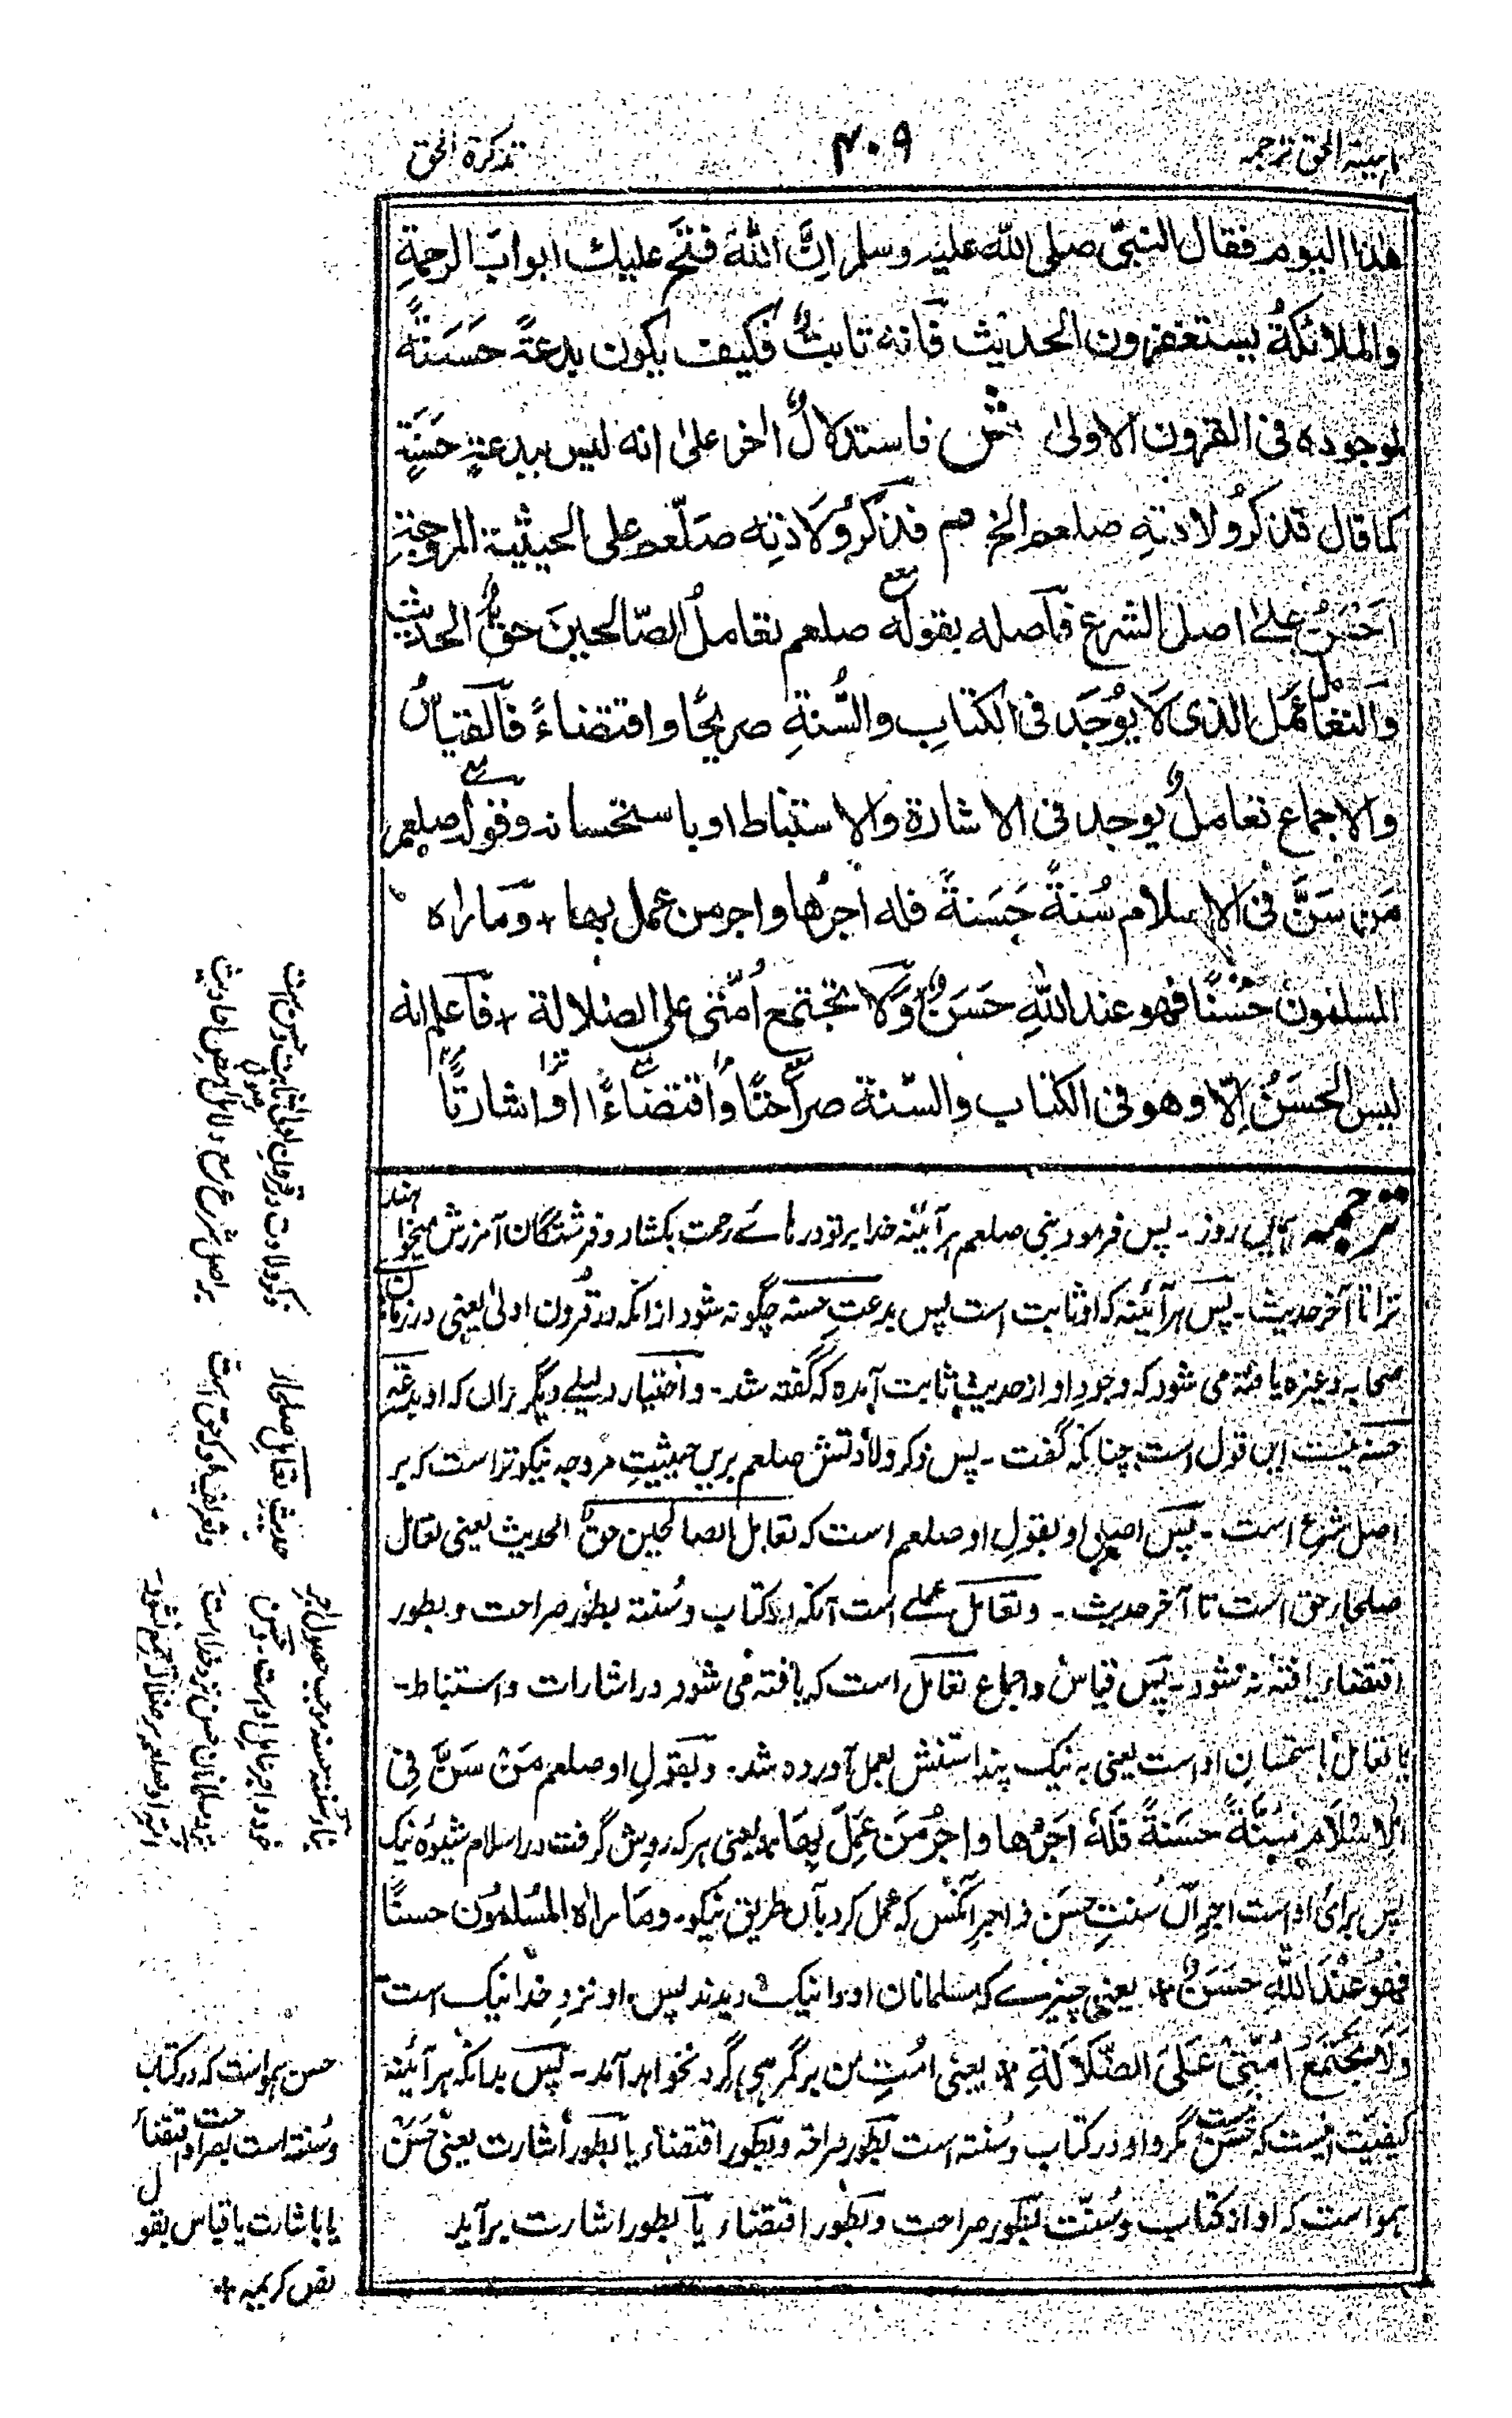 ترجمہ الحق
۴۰۹
تذکرة الحق
هذا اليوم فقال النبیّ صلى الله عليه وسلم اِنَّ اللهَ فتَح عليك ابوابَ الرحمةِ
والملائكةُ يستغفرون الحديث فآنه ثابتٌ فكيف يكون بدعةً حسَنةً
لوجوده فی القرون الاولىٰ ش فاستدلالٌ اٰخر علىٰ انه ليس ببدعةٍ حَسَنةٍ
كما قال فذكرُ ولادتهِ صلعم الخ م فذكرُ ولَادتِه صَلّعم على الحيثية المروجة
اَحْسَنُ علےٰ اصل الشرع فآصله بقوله صلعم تعاملُ الصّالحينَ حقٌّ الحديث
وَالتعامل عمَل الذی لَا يُوجَد فی الكتابِ والسُّنةِ صريحًا واقتضاءً فآلقياسُ
والاجماع تعاملٌ يوجد فی الاشارة والاستنباط او باستحسانه وفقوله صلعم
مَن سَنَّ فی الاسلام سُنةً حَسَنةً فله اجرُها واجر من عمل بها + وَمَا راٰه
المسلمون حَسَنًا فهو عند اللهِ حَسَنٌ وَلَا تجتمع اُمّتی على الضلالة + فآعلم انه
ليس الحَسَنُ اِلّا وهو فی الكتاب والسّنة صراحَتًا واقتضاءًا او اشارتًا
ترجمہ این روز ۔ پس فرمود نبی صلعم ہر آئینہ خدا بر تو درہائے رحمت بکشاد و فرشتگان آمرزش میخواہند
ترا تا آخر حدیث ۔ پس ہر آئینہ کہ او ثابت است پس بدعتِ حسنہ چگونہ شود از انکہ در قُرون اولیٰ یعنی در زمان
صحابہ وغیرہ یافتہ می شود کہ وجودِ او از حدیث ثابت آمدہ کہ گفتہ شد ۔ و اختیار دلیلے دیگر براں کہ او بدعتِ
حسنہ نیست این قول است چنانکہ گفت ۔ پس ذکر ولادتش صلعم بریں حیثیتِ مروجہ نیکوتر است کہ بر
اصل شرع است ۔ پس اصلِ او بقولِ او صلعم است کہ تعامل الصالحین حقٌ الحدیث یعنی تعامل
صلحا حق است تا آخر حدیث ۔ و تعامل عملے است آنکہ در کتاب و سُنتہ بطور صراحت و بطور
اقتضاء یافتہ نہ شود ۔ پس قیاس و اجماع تعامل است کہ یافتہ می شود در اشارات و استنباط ۔
یا تعامل باستحسانِ او است یعنی بہ نیک پنداشتنش بعمل آوردہ شد ۔ و بقولِ او صلعم مَنْ سَنَّ فِی
الاسْلَامِ سُنَّةً حسَنةً فَلَهٗ اَجرُها واجرُ مَن عَمِلَ بِهَا یعنی ہر کہ روش گرفت در اسلام شیوۂ نیک
پس برای او است اجرِ آں سُنتِ حسَن و اجرِ آنکس کہ عمل کرد بآں طریق نیکو ۔ و مَا راٰہ المُسْلمُون حسنًا
فهوُ عِنْدَ اللهِ حسَنٌ + یعنی چیزے کہ مسلمانان او را نیک دیدند پس او نزدِ خدا نیک است
وَلَا تَجتمعُ اُمّتیْ عَلَی الضّلَالَةِ + یعنی امتِ من بر گمرہی گرد نخواہد آمد ۔ پس بدانکہ ہر آئینہ
کیفیت اینست کہ حَسَن نیست مگر و او در کتاب و سُنتہ است بطور صراحۃ و بطور اقتضاء یا بطور اشارت یعنی حَسَن
ہمو است کہ او از کتاب و سُنّت بطور صراحت و بطور اقتضاء یا بطور اشارت برآید
بر اصل شرع مع دلائل بعض احادیث
حدیثِ تعاملِ صلحا
و تعریف او کہ حق است
حسن ہمو است کہ در کتاب
و سُنتہ است بصراحت و اقتضاء
یا باشارت یا قیاس بقول
نص کریمہ +